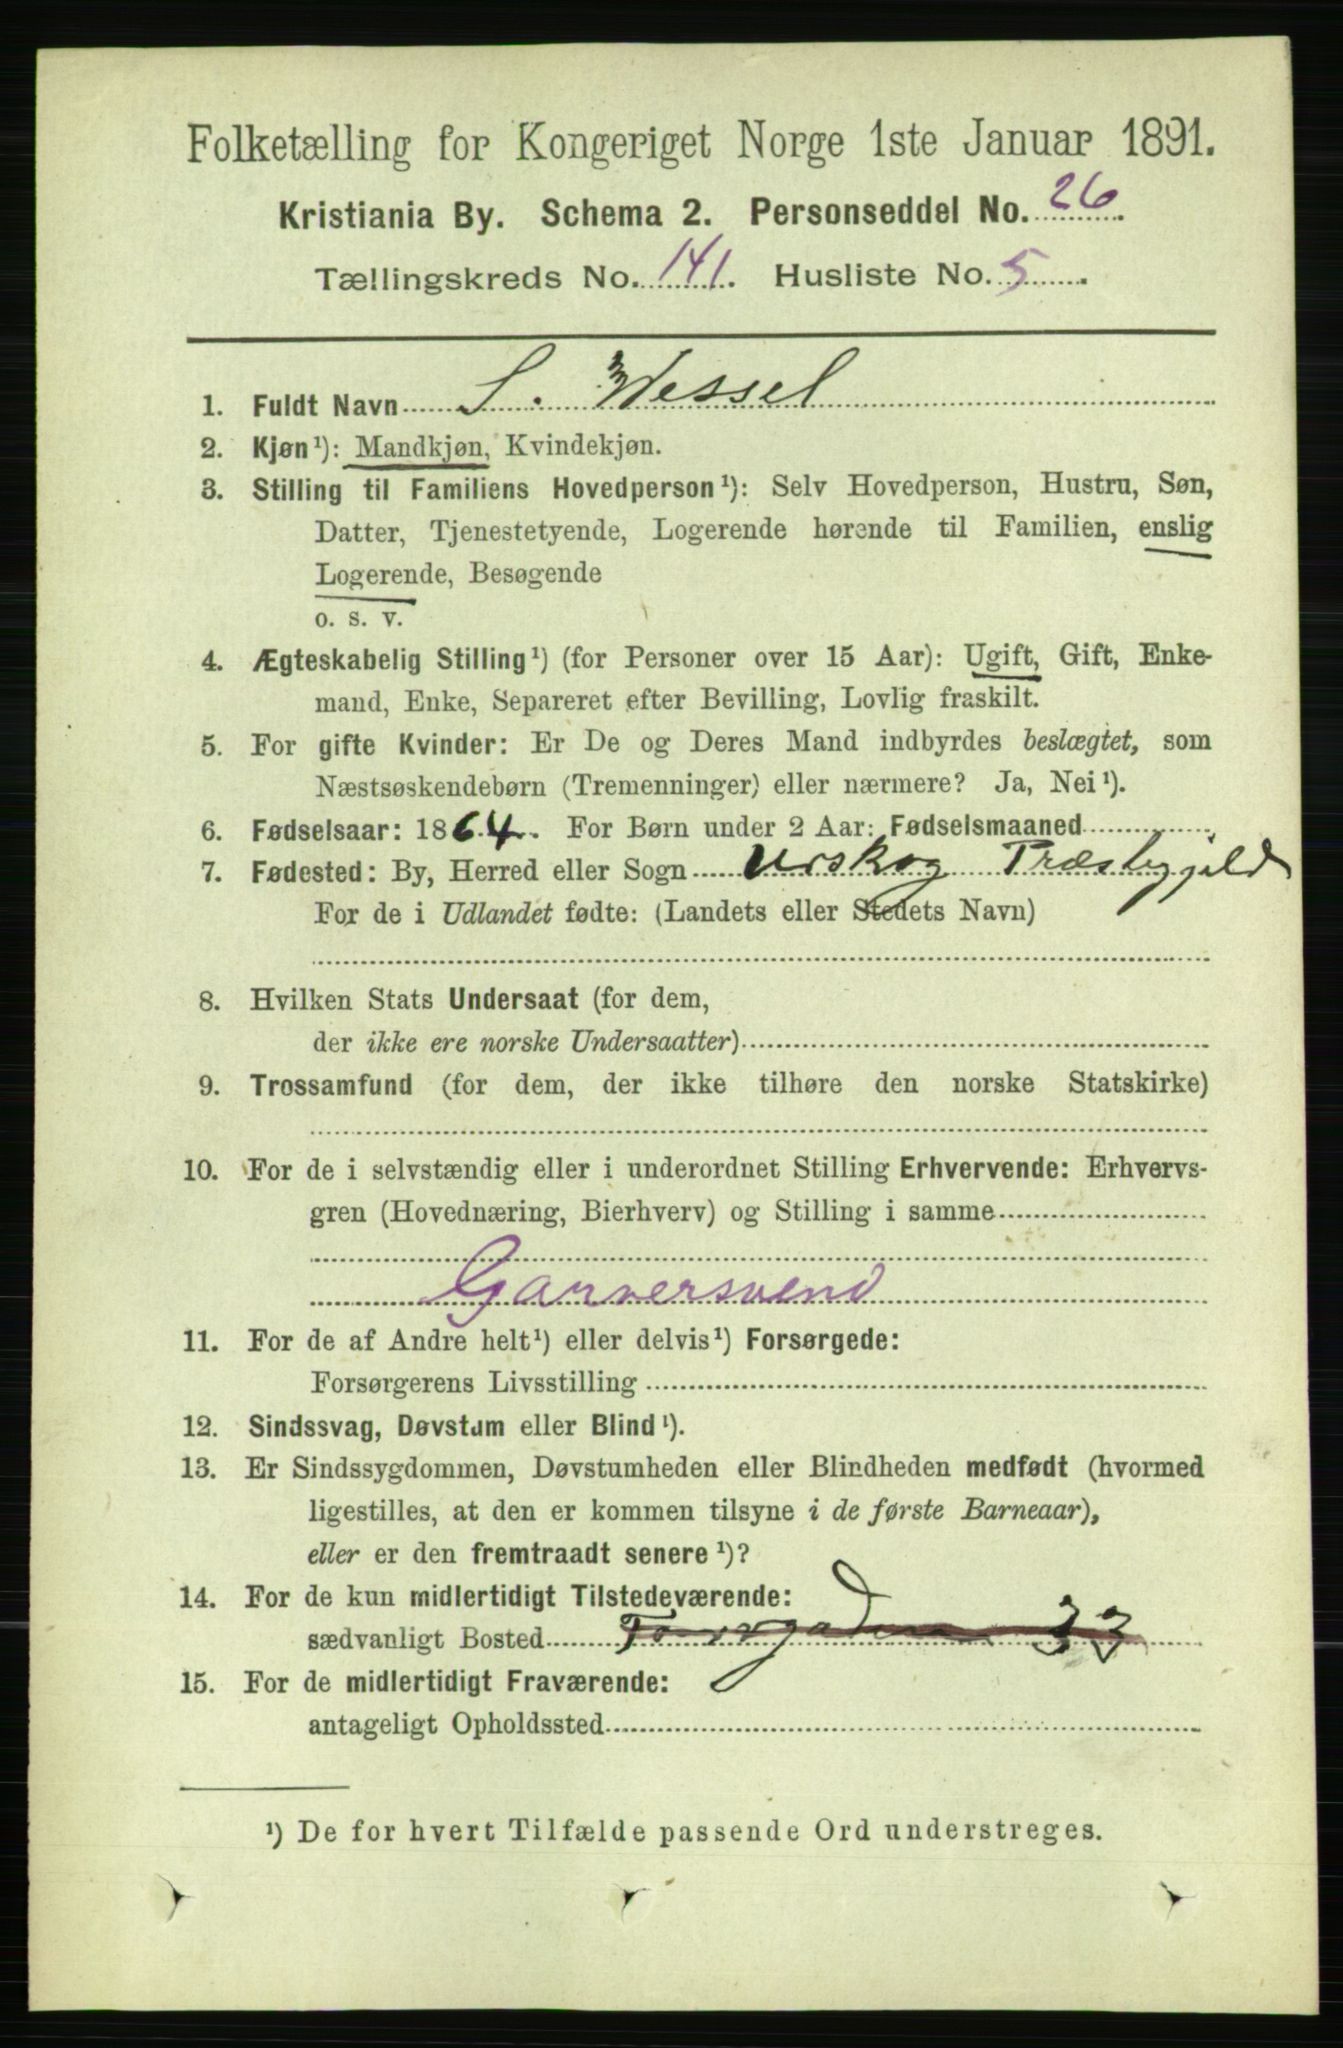 Folketælling for Kongeriget Norge 1ste Januar 1891.
Kristiania By. Schema 2. Personseddel No. 26
Tællingskreds No. 141. Husliste No. 5.
1. Fuldt Navn S. Wessel
2. Kjøn¹): Mandkjøn, Kvindekjøn.
3. Stilling til Familiens Hovedperson¹): Selv Hovedperson, Hustru, Søn,
Datter, Tjenestetyende, Logerende hørende til Familien, enslig
Logerende, Besøgende
o. s. v.
4. Ægteskabelig Stilling¹) (for Personer over 15 Aar): Ugift, Gift, Enke-
mand, Enke, Separeret efter Bevilling, Lovlig fraskilt.
5. For gifte Kvinder: Er De og Deres Mand indbyrdes beslægtet, som
Næstsøskendebørn (Tremenninger) eller nærmere? Ja, Nei¹).
6. Fødselsaar: 1864. For Børn under 2 Aar: Fødselsmaaned
7. Fødested: By, Herred eller Sogn Urskog Præstegjeld
For de i Udlandet fødte: (Landets eller Stedets Navn)
8. Hvilken Stats Undersaat (for dem,
der ikke ere norske Undersaatter)
9. Trossamfund (for dem, der ikke tilhøre den norske Statskirke)
10. For de i selvstændig eller i underordnet Stilling Erhvervende: Erhvervs-
gren (Hovednæring, Bierhverv) og Stilling i samme
Garversvend
11. For de af Andre helt¹) eller delvis¹) Forsørgede:
Forsørgerens Livsstilling
12. Sindssvag, Døvstum eller Blind¹).
13. Er Sindssygdommen, Døvstumheden eller Blindheden medfødt (hvormed
ligestilles, at den er kommen tilsyne i de første Barneaar),
eller er den fremtraadt senere¹)?
14. For de kun midlertidigt Tilstedeværende:
sædvanligt Bosted 33
15. For de midlertidigt Fraværende:
antageligt Opholdssted
¹) De for hvert Tilfælde passende Ord understreges.